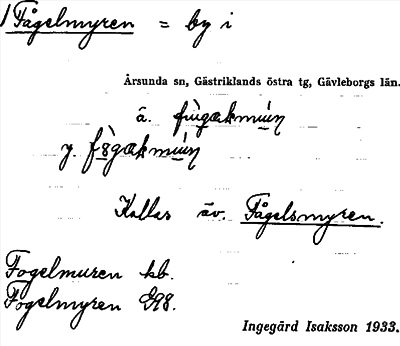 1 Fågelmyren = by i
Årsunda sn, Gästriklands östra tg, Gävleborgs län.
ä.
y.
Kallas äv. Fågelsmyren.
Fogelmuren kb.
Fogelmyren E98.
Ingegärd Isaksson 1933.